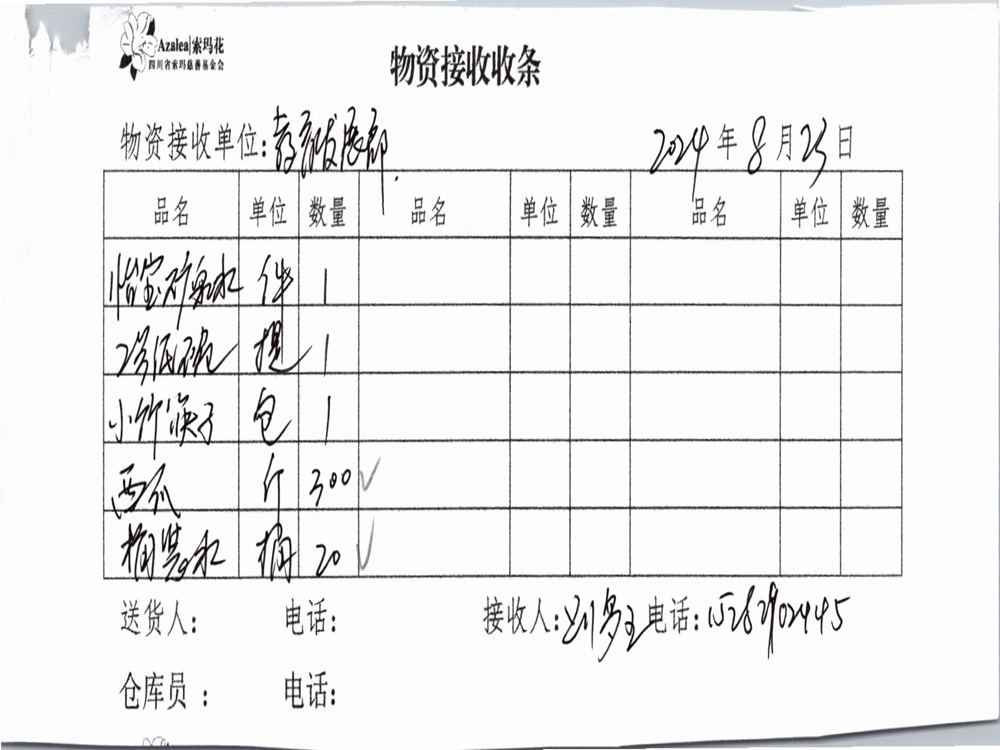 Azalea|索玛花
四川省索玛慈善基金会
物资接收收条
物资接收单位:教育发展部. 2024年8月23日
品名 单位 数量 品名 单位 数量 品名 单位 数量
怡宝矿泉水 件 1
2号纸碗 提 1
小竹筷子 包 1
西瓜 斤 300 ✓
桶装水 桶 20 ✓
送货人: 电话: 接收人:刘 电话:15282902445
仓库员: 电话: